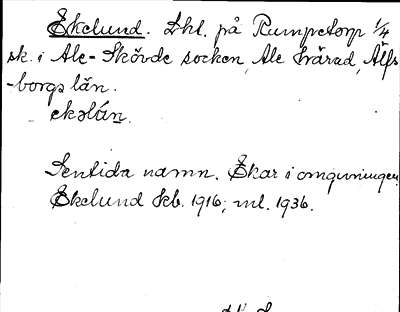 Ekelund. Lht. på Rumpetorp 1/4
sk. i Ale-Skövde socken, Ale härad, Älfs
-borgs län.
ekəlún.
Sentida namn. Ekar i omgivningen.
Ekelund Kb. 1916; ml. 1936.